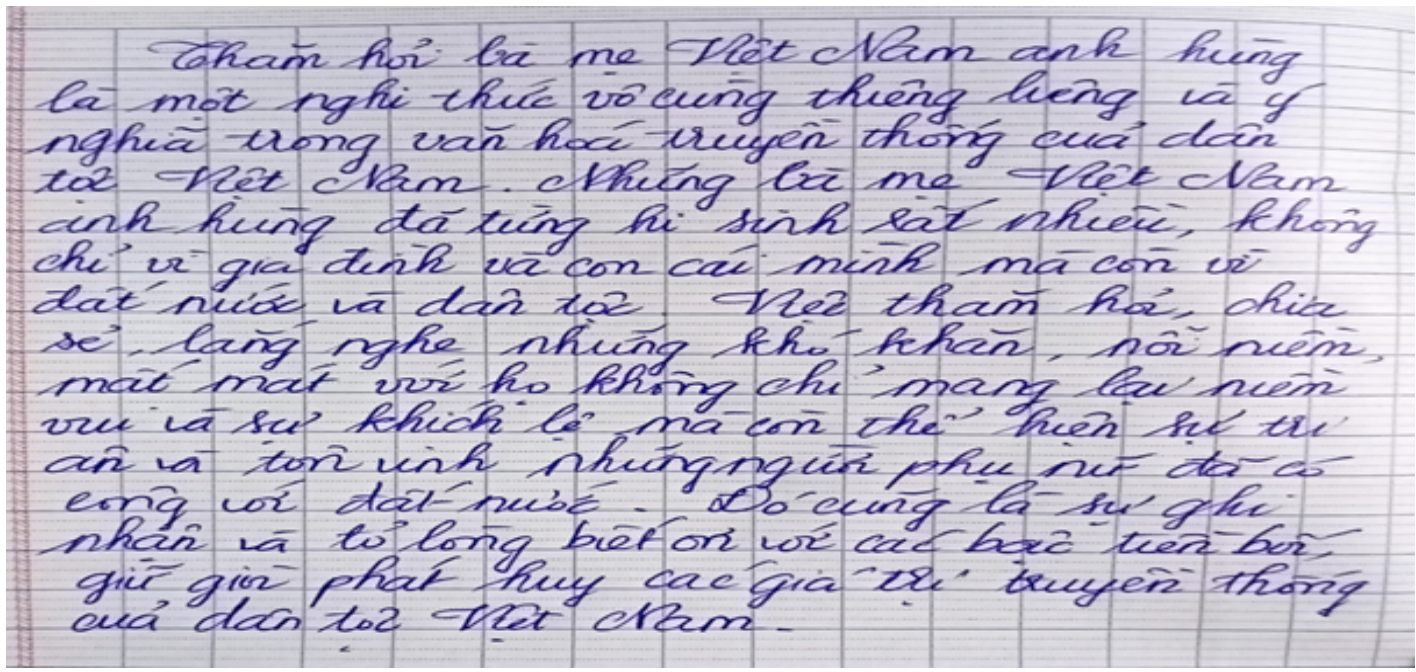 Thăm hỏi bà mẹ Việt Nam anh hùng
là một nghi thức vô cùng thiêng liêng và ý
nghĩa trong văn hoá truyền thống của dân
tộc Việt Nam. Những bà mẹ Việt Nam
anh hùng đã từng hi sinh rất nhiều, không
chỉ vì gia đình và con cái mình mà còn vì
đất nước và dân tộc. Việc thăm hỏi, chia
sẻ, lắng nghe những khó khăn, nỗi niềm,
mất mát với họ không chỉ mang lại niềm
vui và sự khích lệ mà còn thể hiện sự tri
ân và tôn vinh những người phụ nữ đã có
công với đất nước. Đó cũng là sự ghi
nhận và tỏ lòng biết ơn với các bậc tiền bối,
giữ gìn phát huy các giá trị truyền thống
của dân tộc Việt Nam.